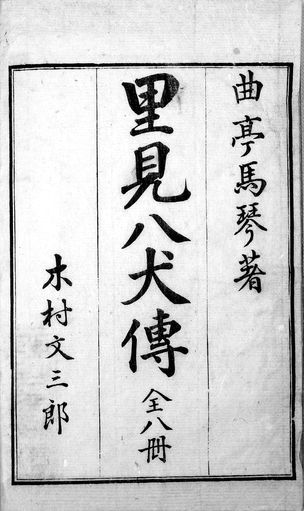 曲亭馬琴著
里見八犬傳
全八冊
木村文三郎